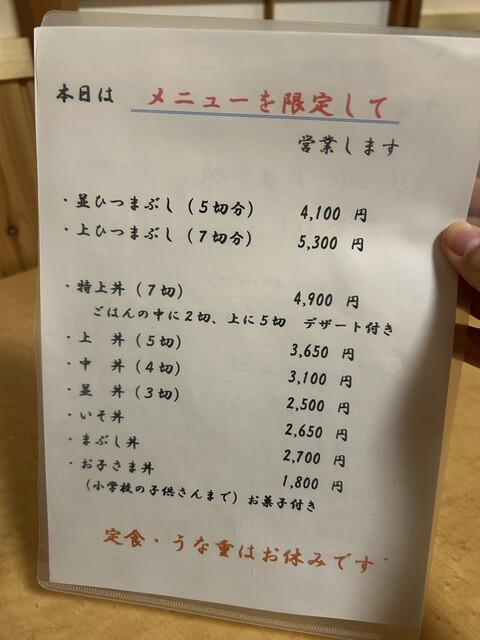 本日は メニューを限定して
営業します
・並ひつまぶし（5切分） 4,100 円
・上ひつまぶし（7切分） 5,300 円
・特上丼（7切） 4,900 円
ごはんの中に2切、上に5切 デザート付き
・上 丼（5切） 3,650 円
・中 丼（4切） 3,100 円
・並 丼（3切） 2,500 円
・いそ丼 2,650 円
・まぶし丼 2,700 円
・お子さま丼 1,800 円
（小学校の子供さんまで）お菓子付き
定食・うな重はお休みです